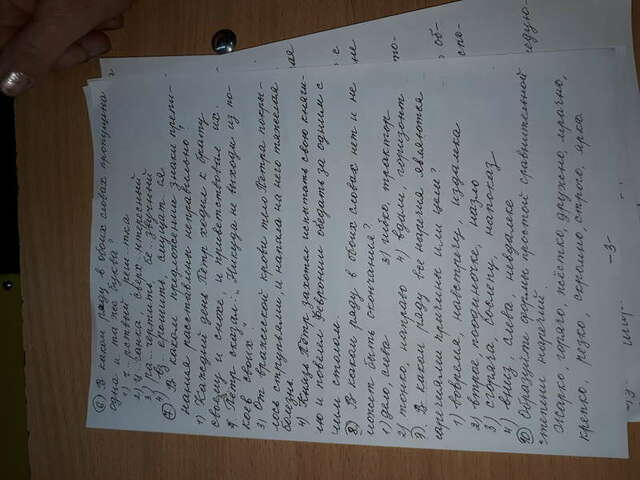 6) В каком ряду в обоих словах пропущена
одна и та же буква?
1) ч...рствый, реш...тка
2) ц...ганка, сверх...нтересный
3) ра...чертить, бе...звучный
4) вз...ерошить, смущат...ся
7) В каком предложении знаки препи-
нания расставлены неправильно?
1) Каждый день Пётр ходил к брату
своему и снохе, и приветствовал их.
2) Пётр сказал: „Никуда не выходи из по-
коев своих."
3) От вражеской крови тело Петра покры-
лось струпьями, и напала на него тяжелая
болезнь.
4) Князь Пётр захотел испытать свою княги-
ню и повелел Февронии обедать за одним с
ним столом.
8) В каком ряду в обоих словах нет и не
может быть окончания?
1) дело, слева 3) гибко, трактор
2) тонко, направо 4) вдали, горизонт
9). В каком ряду все наречия являются
наречиями причины или цели?
1) вовремя, навстречу, издалека
2) втрое, поодиночке, назло
3) сгоряча, вослепу, напоказ
4) вниз, слева, невдалеке
10) Образуйте формы простой сравнительной
степени наречий.
Жарко, горячо, жёстко, дружно, мрачно,
крепко, резко, скромно, строго, ярко.
-3-